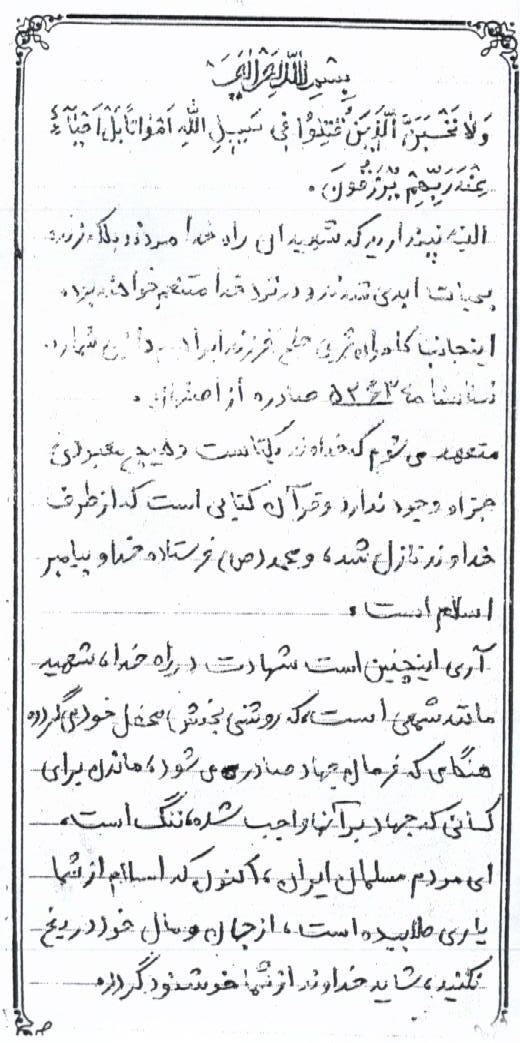 بسم الله الرحمن الرحیم
وَلا تَحْسَبَنَّ الَّذینَ قُتِلُوا فی سَبیلِ اللّهِ اَمْواتاً بَلْ اَحْیآءٌ
عِنْدَ رَبِّهِمْ یُرْزَقُونَ.
البته نپندارید که شهیدان راه خدا مردند بلکه زنده
بحیات ابدی شدند و در نزد خدا متنعم خواهند بود.
اینجانب فرزند ابراهیم دارای شماره
شناسنامه ۵۲۶۳۰ صادره از اصفهان.
متعهد می شوم که خداوند یکتاست و هیچ معبودی
جز او وجود ندارد و قرآن کتابی است که از طرف
خداوند نازل شد، و محمد (ص) فرستاده خدا و پیامبر
اسلام است.
آری اینچنین است شهادت در راه خدا، شهید
مانند شمعی است، که روشنی بخش محفل خود می گردد
هنگامی که فرمان جهاد صادر می شود، ماندن برای
کسانی که جهاد بر آنها واجب شده، ننگ است،
ای مردم مسلمان ایران، اکنون که اسلام از شما
یاری طلبیده است، از جان و مال خود دریغ
نکنید، شاید خداوند از شما خوشنود گردد.